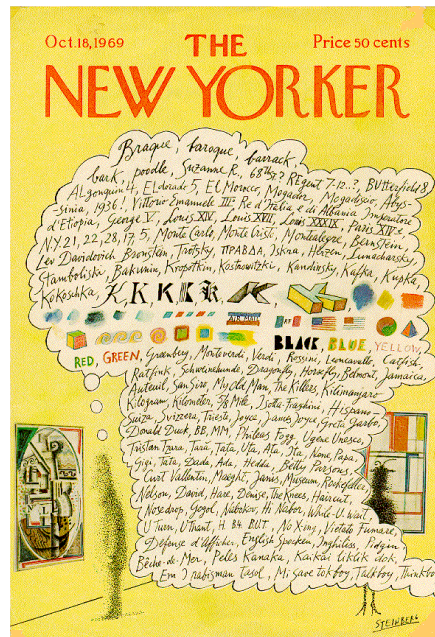 Oct. 18, 1969 THE Price 50 cents
NEW YORKER
Braque, baroque, barrack,
bark, poodle, Suzanne R., 68th St? REgent 7-12..?, BUtterfield 8,
ALgonquin 4, ELdorado 5, El Morocco, Mogador, Mogadiscio, Abys-
sinia, 1936! Vittorio Emanuele III Re d'Italia e di Albania Imperatore
d'Etiopia, George V, Louis XIV, Louis XVII, Louis XXXIX, Paris XIVe
N.Y. 21, 22, 28, 17, 5, Monte Carlo, Monte Cristi, Montealegre, Bernstein
Lev Davidovich Bronstein, Trotsky, ПРАВДА, Iskra, Herzen, Lunacharsky
Stamboliska, Bakunin, Kropotkin, Kandinsky, Kafka, Kupka,
Kokoschka, K, K, K K K K K, K,
AIR MAIL
BLACK, BLUE, YELLOW,
RED, GREEN, Greenberg, Monteverdi, Verdi, Rossini, Leoncavallo, Catfish,
Ratfink, Schweinehunde, Dragonfly, Horsefly, Belmont, Jamaica,
Auteuil, San Siro, My Old Man, The Killers, Kilimanjaro
Kilogram, Kilometer, 5th Mile, Isotta-Fraschini, Hispano
Suiza, Svizzera, Trieste, Joyce, James Joyce, Greta Garbo,
Donald Duck, BB, MM, Phileas Fogg, Ugene Unesco,
Tristan Tzara, Tara, Tata, Uta, Ata, Ita, None, Papa,
Gigi, Tati, Dada, Ada, Hedda, Betty Parsons,
Curt Valentin, Maeght, Janis, Museum, Rockefeller
Nelson, David, Hare, Denise, The Knees, Haircut,
Nosedrop, Gogol, Nabokov, Hi Nabor, While-U-Wait,
U Turn, U Thant, H. B4 BUT, No King, Vietato Fumare,
Défense d'Afficher, English Spoken, Inglilliss, Pidgin
Bêche-de-Mer, Pelles Kanaka, Kaikai liklik dok,
Em I rabisman tasol, Mi save tokboy, Talkboy, Thinkbo
STEINBERG